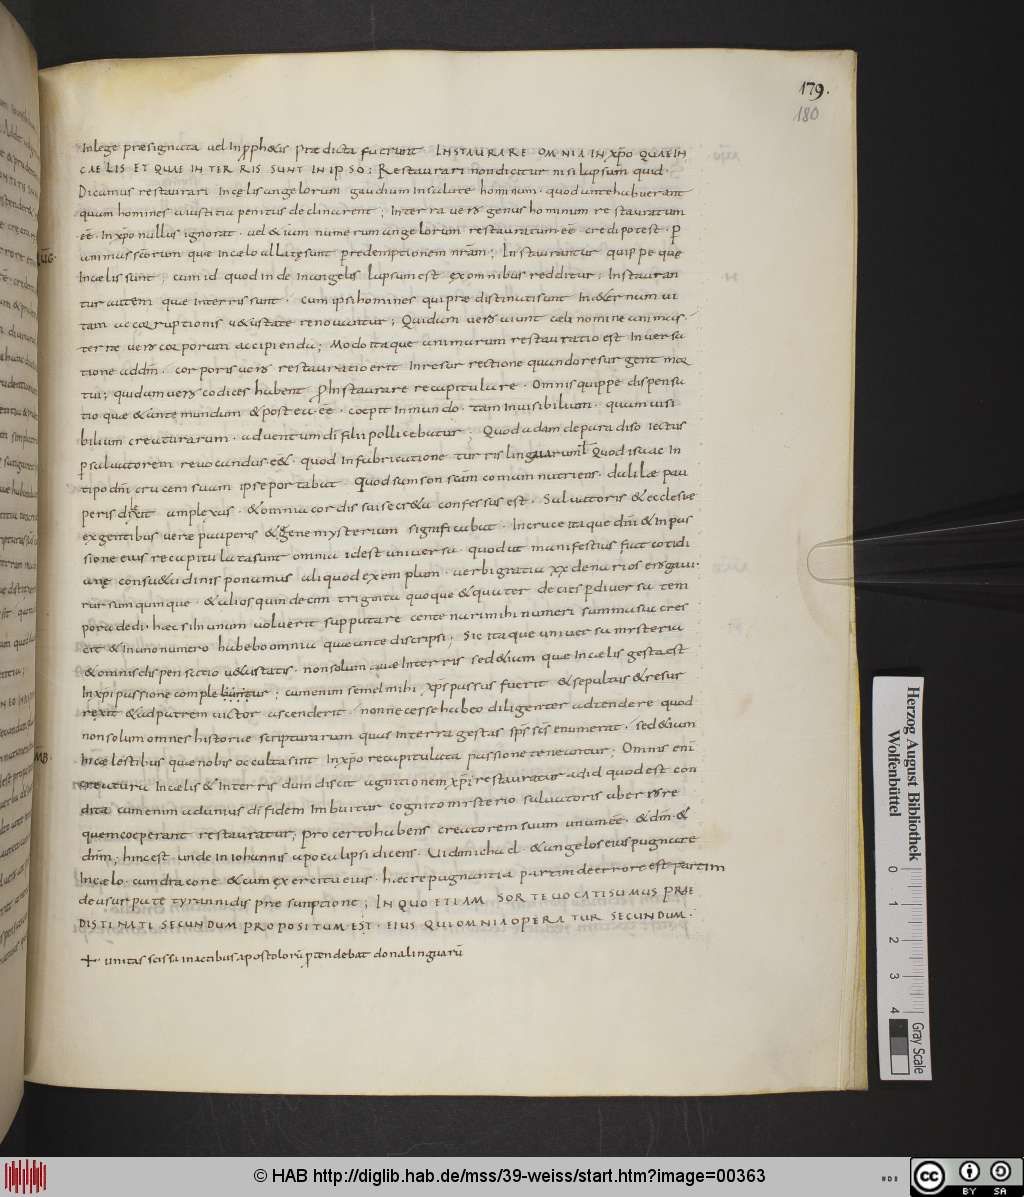 179.
180
Inlege præsignata vel Inpph&is præ dicta fuerunt. INSTAURARE OMNIA IN xpo QUAE IN
CAELIS ET QUAE IN TERRIS SUNT IN IPSO; Restaurari nondicitur nisi lapsum quid.
Dicamus restaurari Incęlis angelorum gaudium Insalute hominum. quod antehabuerant
quam homines aiustitia penitus declinarent; Interra uero genus hominum restauratum
eē. Inxpo nullus ignorat. vel &iam numerum angelorum restauratum eē credi potest. p
animas scorum que Incælo allatę sunt predemptionem nrām; Instaurantur quippe que
Incælis sunt; cum id quod inde Inangelis lapsum est ex ominibus redditur; Instauran
tur autem que Interris sunt. cum ipsi homines qui præ distinati sunt In&ernum ui
tam ac corruptionis u&ustate renouantur; Quidam uero aiunt cæli nomine animas
terræ uero corporum accipienda; Modo itaque animarum restauratio est Inuersa
tione addm̄. corporis uero restauratio erit Inresurrectione quando resurgent mor
tui; quidam uero codices habent pInstaurare recapitulare. Omnis quippe dispensa
tio que &ante mundum &post ea eē. coepit In mundo. tam Inuisibilium. quam uisi
bilium creaturarum. aduentum di filii pollicebatur; Quod adam depara diso iectus
p saluatorem reuocandus e&. quod Infabricatione turris linguarum Quod isaac In
tipo dni crucem suam ipse portabat. Quod samson scam comam nutriens. dalilæ pau
peris dixit amplexus. &omnia cordis sui secr&a confessus est. Saluatoris &ecclesiæ
exgentibus uere pauperis &egene mysterium significabat. Incruce itaque dni &Inpas
sione eius recapitulata sunt omnia idest uniuersa. quod ut manifestius fiat cotidi
anę consu&udinis ponamus aliquod exemplum. uerbi gratia xx denarios erogaui.
rursum quinque. &alios quindecim triginta quoque &quater decies p diuersa tem
pora dedi. hæc si In unum uoluerit supputare centenarii mihi numeri summa suc cres
cit &In uno numero habebo omnia que ante discripsi; Sic itaque uniuersa mysteria
&omnis dispensatio u&ustatis. nonsolum que Interris sed &iam que Incælis gesta est
Inxpi passione complebantur; cum enim semel mihi xps passus fuerit &sepultus &resur
rexit &ad patrem uictor ascenderit. non necesse habeo diligenter adtendere quod
nonsolum omnes historiæ scripturarum quas Interra gestas sps scs enumerat. sed &iam
Incælestibus que nobis occulta sint Inxpo recapitulata passione teneantur; Omnis enī
creatura Incælis &Interris dum discit agnitionem xpi; restauratur ad id quod est con
dita cum enim ad unius di fidem Imbuitur cognito mysterio saluatoris ab errore
quem coeperant restauratur; pro certo habens creatorem suum unum eē. &dm̄. &
dnm̄; hinc est unde In iohannis apocalipsi dicens. Uidi michael. &angelos eius pugnare
Incælo. cum dracone &cum exercitu eius. hæc repugnantia partim de errore est partim
de usurpate tyrannidis præsumptione; IN QUO ETIAM SORTE VOCATI SUMUS PRÆ
DISTINATI SECUNDUM PROPOSITUM EST. EIUS QUI OMNIA OPERATUR SECUNDUM.
+ unitas scissa inactibus apostolorū ptendebat dona linguarū
Herzog August Bibliothek
Wolfenbüttel
0 1 2 3 4
Gray Scale
© HAB http://diglib.hab.de/mss/39-weiss/start.htm?image=00363
cc BY SA